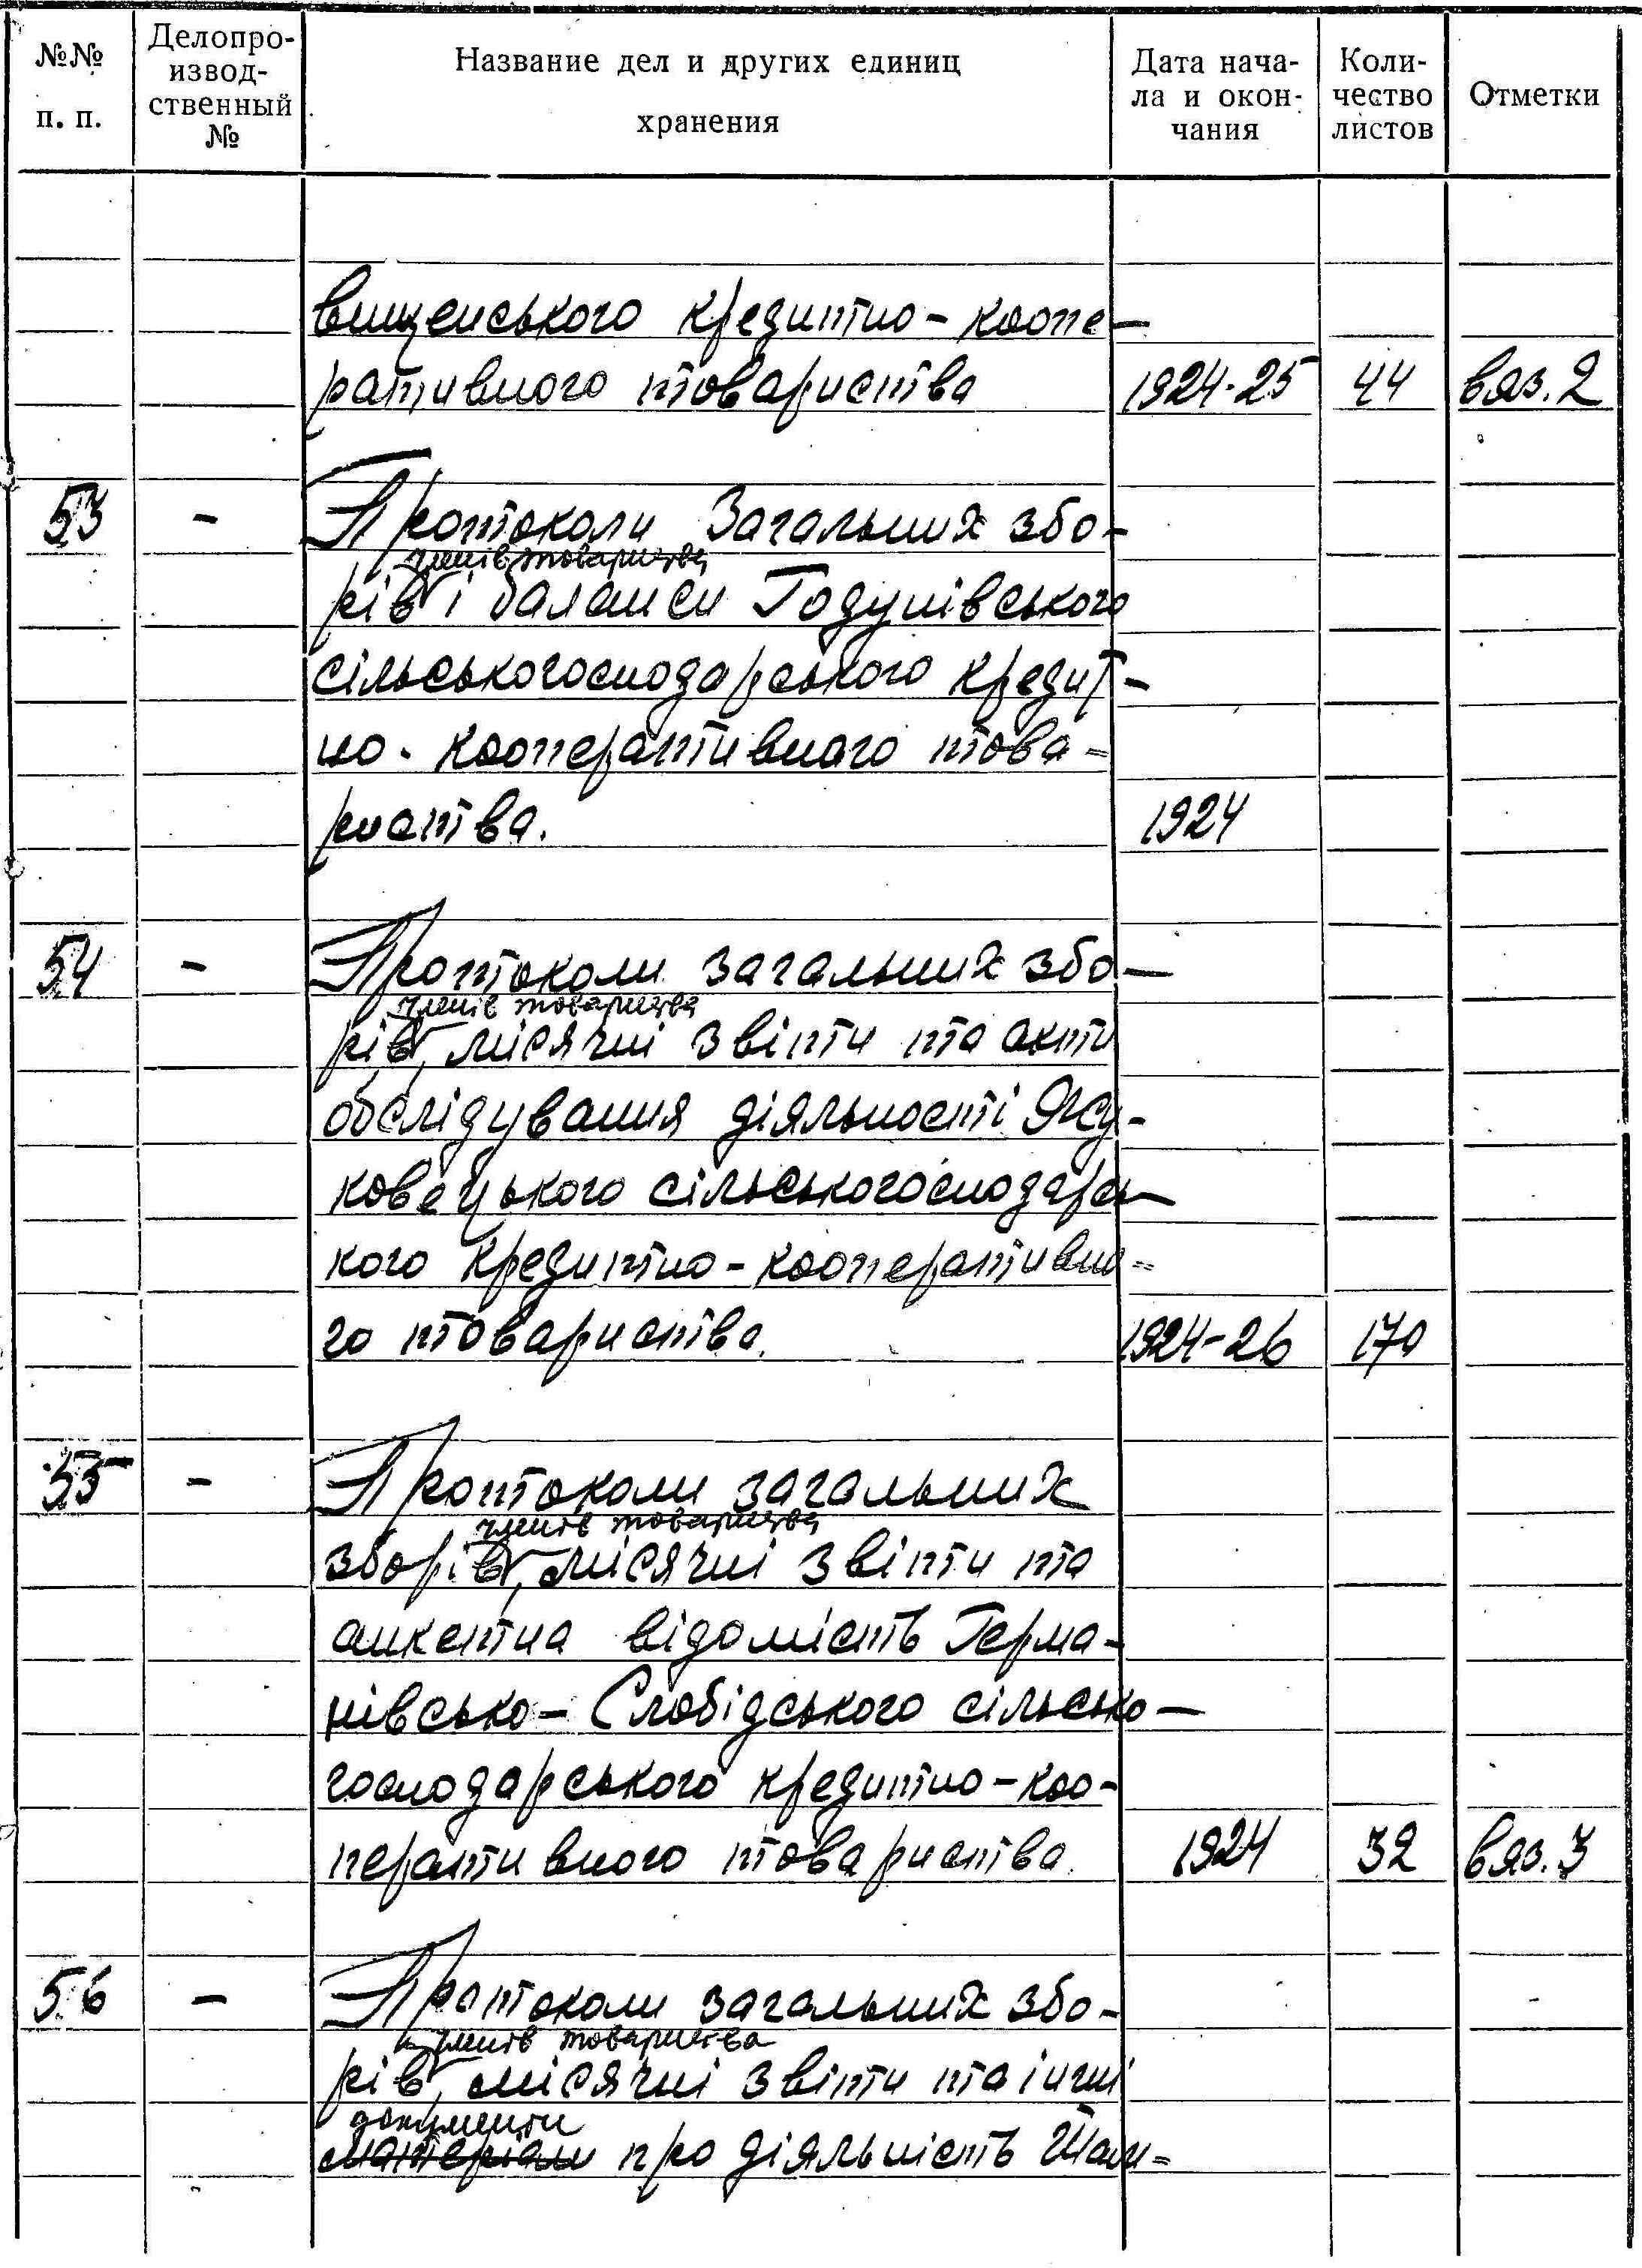 №№ п. п.
Делопроизвод-
ственный №
Название дел и других единиц
хранения
Дата нача-
ла и окон-
чания
Коли-
чество
листов
Отметки
вищенського кредитно-коопе-
ративного товариства 1924-25 44 вяз. 2
53 - Протоколи Загальних збо-
членів товариства
рів і баланси Годунівського
сільськогосподарського кредит-
но-кооперативного това-
риства. 1924
54 - Протоколи загальних збо-
членів товариства
рів, місячні звіти та акти
обслідування діяльності Жу-
ковецького сільськогосподарсь-
кого кредитно-кооперативно-
го товариства. 1924-26 170
55 - Протоколи загальних
членів товариства
зборів, місячні звіти та
анкетна відомість Герма-
нівсько-Слобідського сільсько-
господарського кредитно-коо-
перативного товариства. 1924 32 вяз. 3
56 - Протоколи загальних збо-
членів товариства
рів, місячні звіти та інші
документи
матеріали про діяльність